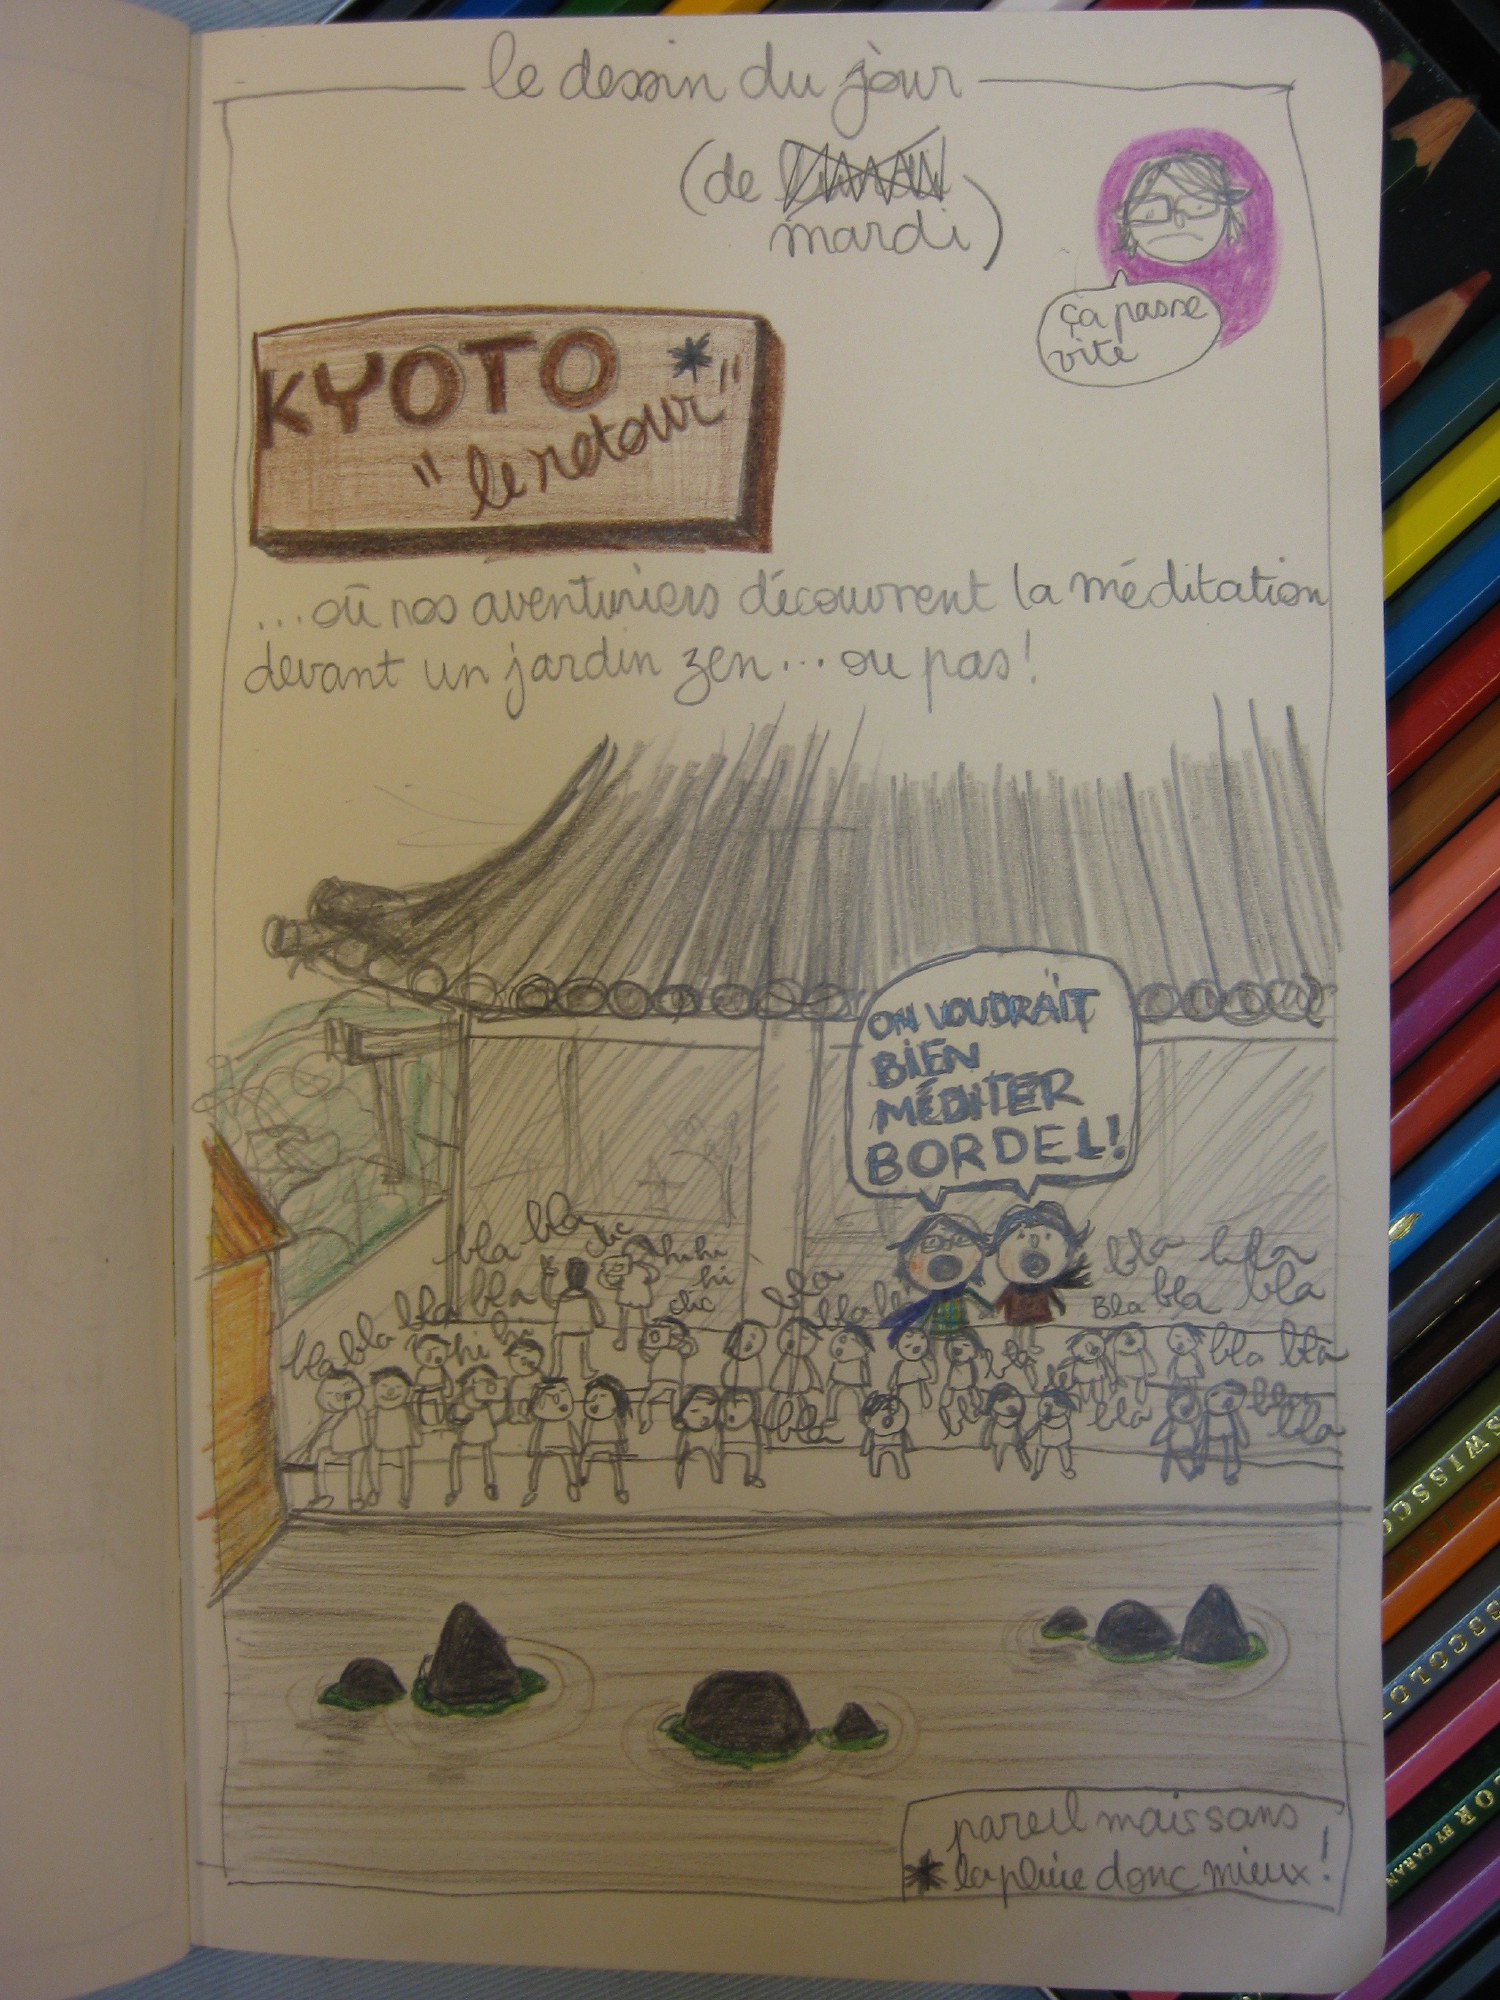 le dessin du jour
(de
mardi)
ça passe
vite
KYOTO *
"le retour"
...où nos aventuriers découvrent la méditation
devant un jardin zen... ou pas!
ON VOUDRAIT
BIEN
MÉDITER
BORDEL!
bla bla clic
bla bla bla bla hi hi
hihi
hi
clic
bla
bla bla
bla bla
Bla bla bla
bla bla
bla
bla
bla
bla
pareil mais sans
* la pluie donc mieux!
SWISSCO
SSCOLO
OR BY CARAN